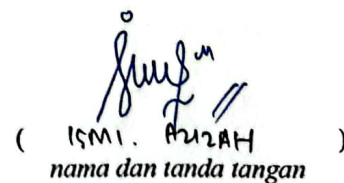 ( ISMI. AZIZAH )
nama dan tanda tangan